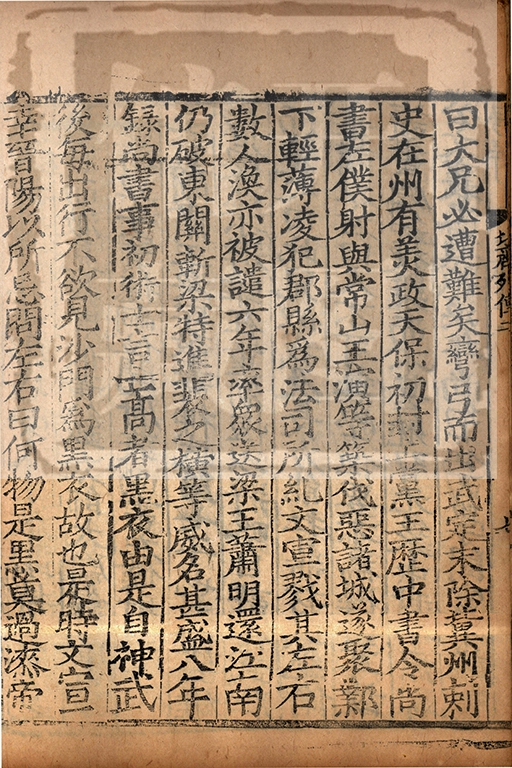 北齊列傳二
七
曰大兄必遭難矣彎弓而出武定末除冀州刺
史在州有美政天保初封上黨王歷中書令尚
書左僕射與常山王演等築伐惡諸城遂聚鄴
下輕薄凌犯郡縣爲法司所糺文宣戮其左右
數人渙亦被譴六年率眾送梁王蕭明還江南
仍破東關斬梁特進裴之橫等威名甚盛八年
錄尚書事初術士言亡高者黑衣由是自神武
後每出行不欲見沙門爲黑衣故也是時文宣
幸晉陽以所忌問左右曰何物是黑莫過漆帝